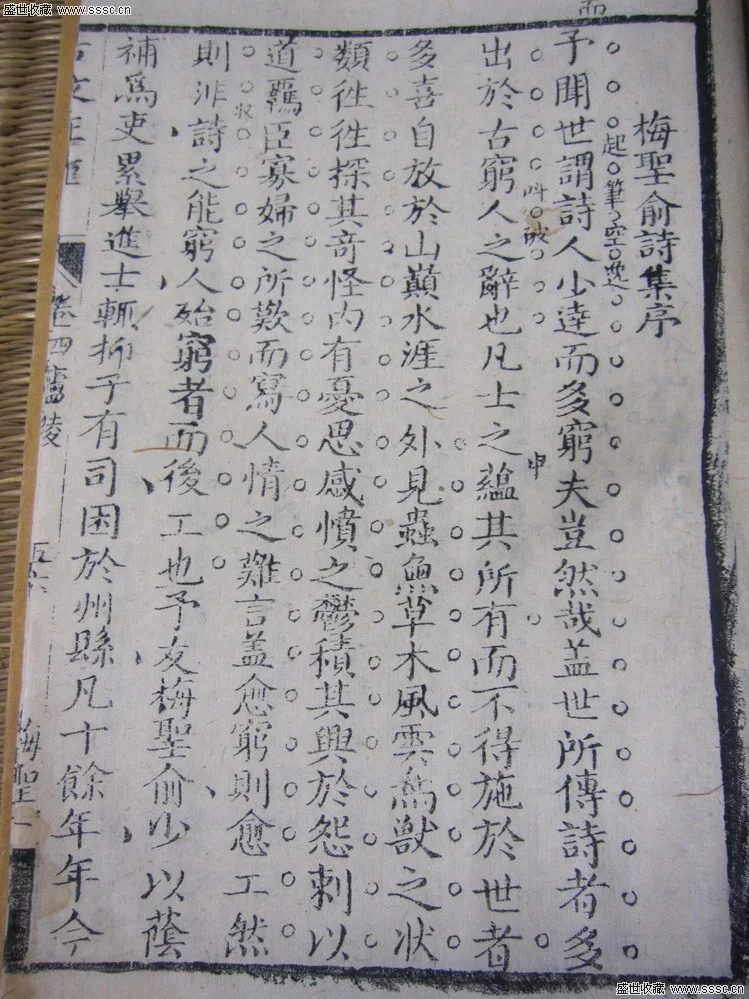 盛世收藏 www.sssc.cn
盛世收藏 www.sssc.cn
梅聖俞詩集序
起筆空逸
予聞世謂詩人少達而多窮夫豈然哉盖世所傳詩者多
叫破
申
出於古窮人之辭也凡士之蘊其所有而不得施於世者
多喜自放於山巔水涯之外見蟲魚草木風雲鳥獸之狀
類徃徃探其奇怪內有憂思感憤之鬱積其興於怨刺以
道羈臣寡婦之所歎而寫人情之難言盖愈窮則愈工然
収
則非詩之能窮人殆窮者而後工也予友梅聖俞少以蔭
補爲吏累舉進士輒抑于有司困於州縣凡十餘年年今
卷四廬陵
梅聖
盛世收藏 www.sssc.cn
盛世收藏 www.sssc.cn